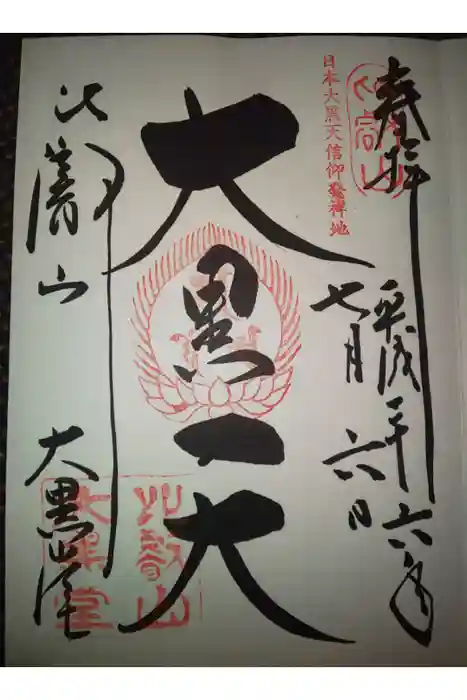 奉拝
平成二十六年
七月六日
日本大黒天信仰発祥地
大黒天
比叡山
大黒堂
比叡山
大黒堂